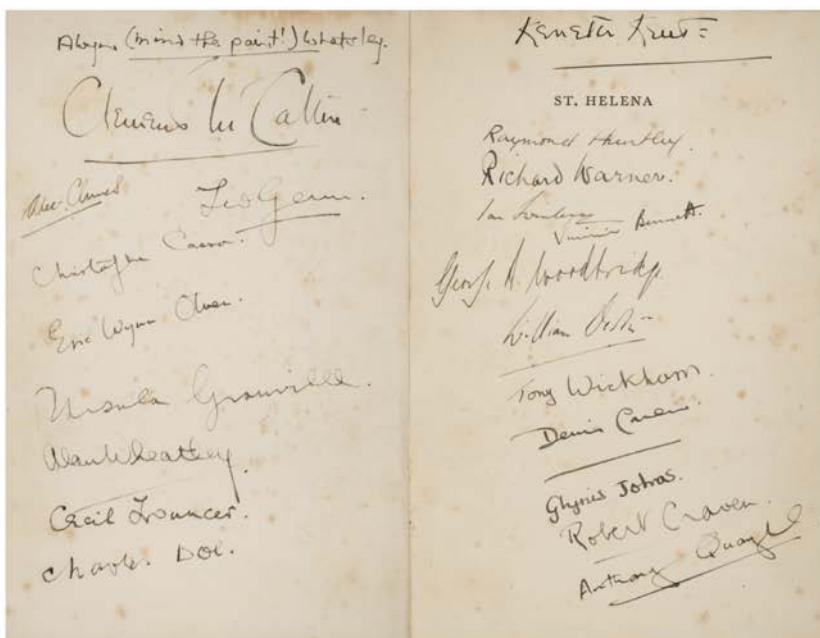 (mind the paint!) Whatsley.
Clemens Mc Callin
Leo Genn.
Christopher Casson.
Eric Wynn Owen.
Ursula Granville.
Alan Wheatley
Cecil Trouncer.
Charles Doe.
Keneth Kent
ST. HELENA
Raymond Huntley.
Richard Warner.
Vivienne Bennett.
George Woodbridge
William Devlin
Tony Wickham.
Denis Carew.
Glynis Johns.
Robert Craven.
Anthony Quayle